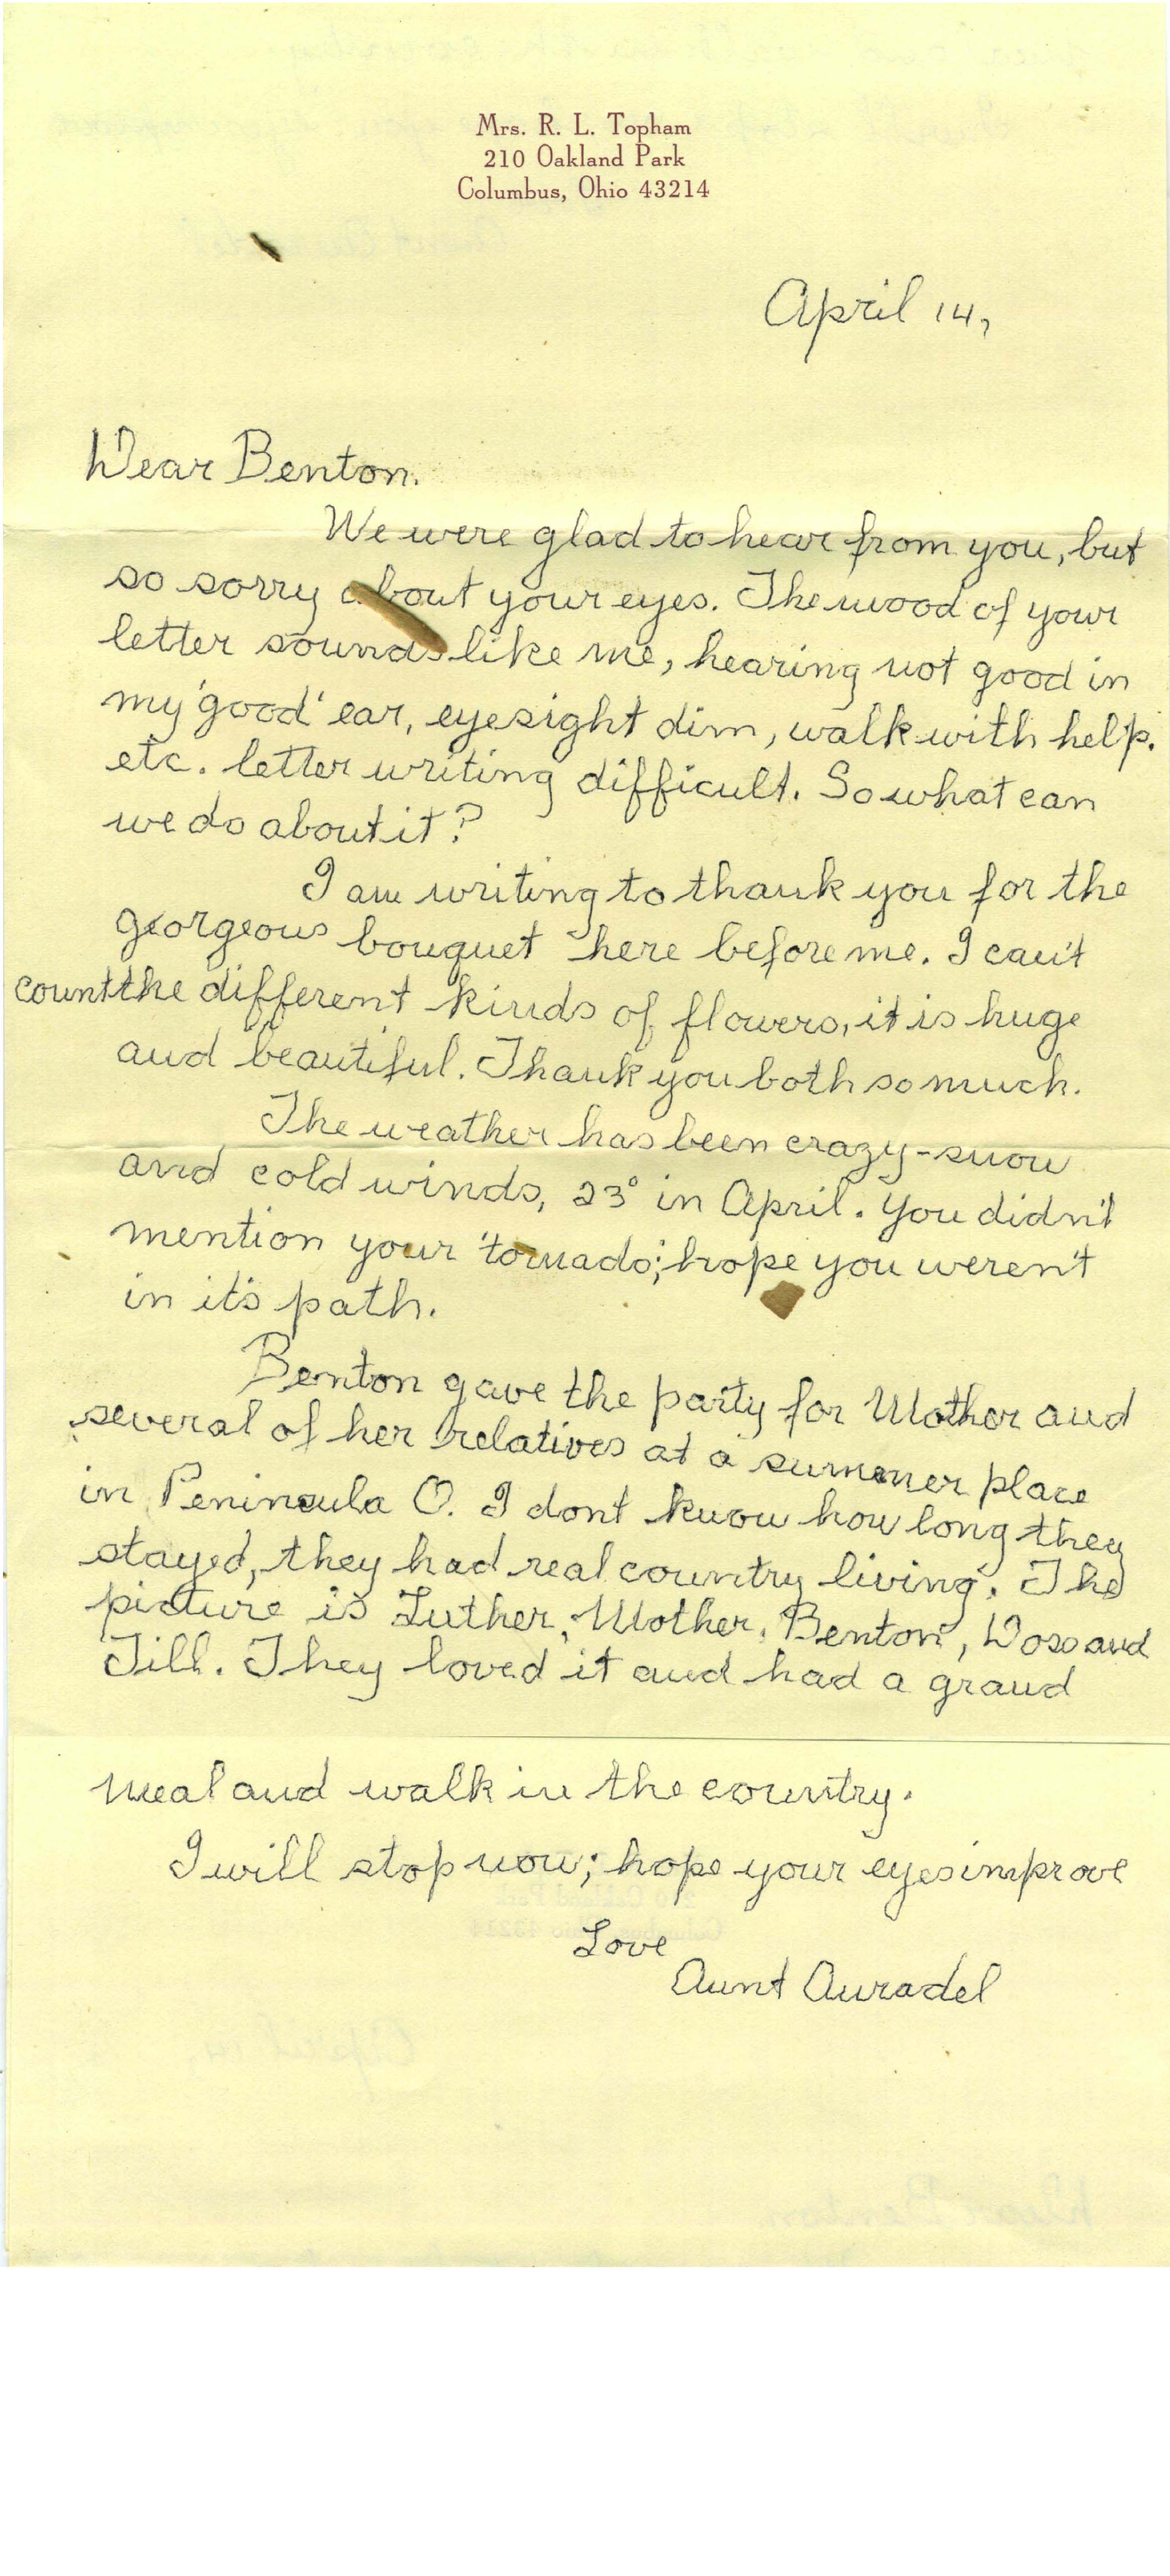 Mrs. R. L. Topham
210 Oakland Park
Columbus, Ohio 43214
April 14,
Dear Benton.
We were glad to hear from you, but
so sorry about your eyes. The mood of your
letter sounds like me, hearing not good in
my 'good' ear, eyesight dim, walk with help.
etc. letter writing difficult. So what can
we do about it?
I am writing to thank you for the
georgeous bouquet here before me. I can't
count the different kinds of flowers, it is huge
and beautiful. Thank you both so much.
The weather has been crazy-snow
and cold winds, 23° in April. You didn't
mention your 'tornado'; hope you weren't
in it's path.
Benton gave the party for Mother and
several of her relatives at a summer place
in Peninsula O. I dont know how long they
stayed, they had real country living. The
picture is Luther, Mother, Benton, Doss and
Jill. They loved it and had a grand
meal and walk in the country.
I will stop now; hope your eyes improve
Love
Aunt Auradel